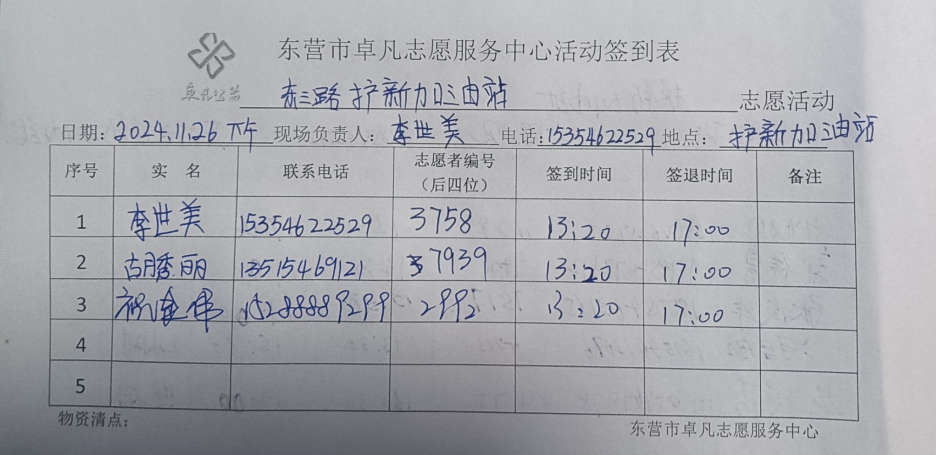 东营市卓凡志愿服务中心活动签到表
卓凡公益
东三路护新加油站 志愿活动
日期: 2024.11.26 下午 现场负责人: 李世美 电话: 15354622529 地点: 护新加油站
序号 实 名 联系电话 志愿者编号(后四位) 签到时间 签退时间 备注
1 李世美 15354622529 3758 13:20 17:00
2 胡秀丽 13515469121 7939 13:20 17:00
3 15288889299 2992 13:20 17:00
4
5
物资清点: 东营市卓凡志愿服务中心